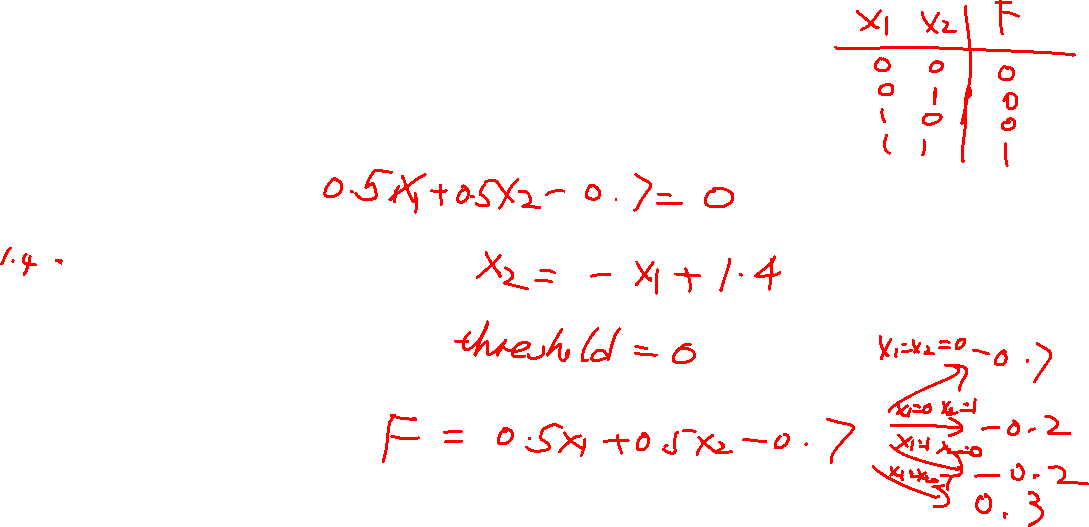 x1 x2 F
0 0 0
0 1 0
1 0 0
1 1 1
0.5x1+0.5x2-0.7=0
1.4
x2=-x1+1.4
threshold=0
x1=x2=0 -0.7
F=0.5x1+0.5x2-0.7
x1=0 x2=1 -0.2
x1=1 x2=0 -0.2
x1=x2=1 0.3